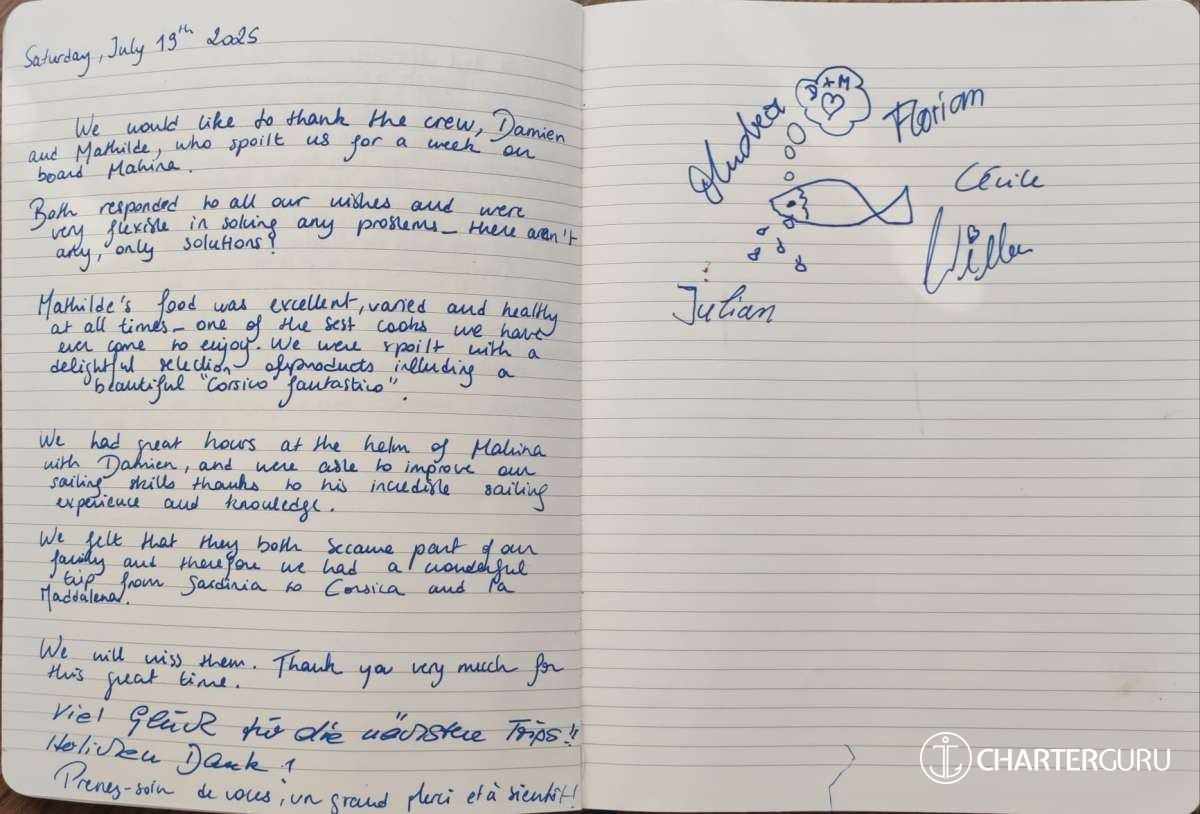 Saturday, July 19th 2025
We would like to thank the crew, Damien
and Mathilde, who spoilt us for a week on
board Mahina.
Both responded to all our wishes and were
very flexible in solving any problems - there aren't
any, only solutions!
Mathilde's food was excellent, varied and healthy
at all times - one of the best cooks we have
ever come to enjoy. We were spoilt with a
delightful selection of products including a
beautiful "Corsico fantastico".
We had great hours at the helm of Mahina
with Damien, and were able to improve our
sailing skills thanks to his incredible sailing
experience and knowledge.
We felt that they both became part of our
family and therefore we had a wonderful
trip from Sardinia to Corsica and la
Maddalena.
We will miss them. Thank you very much for
this great time.
Viel Glück für die nächsten Trips!!
Herlichen Dank!
Prenez-soin de vous, un grand Merci et à bientôt!
D+M
Florian
Cécile
Julian
CHARTERGURU